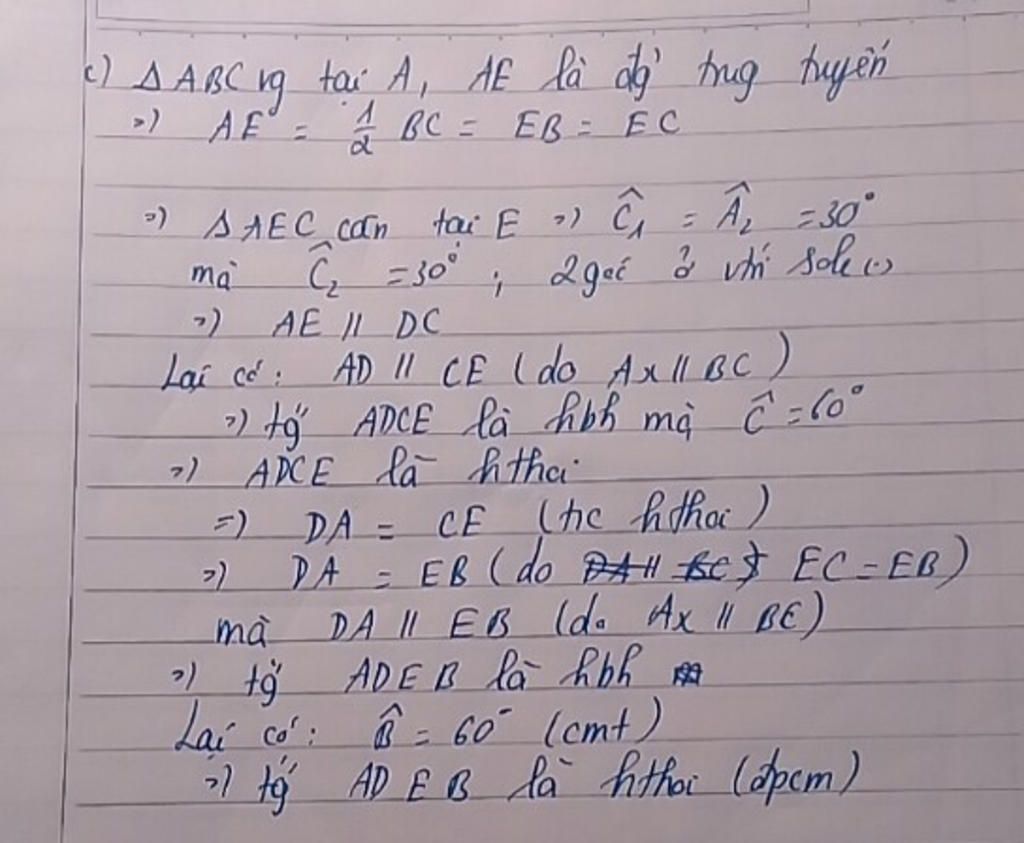 c) Δ ABC vg tại A, AE là đg' trug tuyến
=) AE = 1/2 BC = EB = EC
=) Δ AEC cân tại E =) Ĉ₁ = Â₂ = 30°
mà Ĉ₂ = 30° ; 2 góc ở vtrí sole (.)
=) AE // DC
Lại có: AD // CE (do Ax // BC)
=) tg' ADCE là hbh mà Ĉ = 60°
=) ADCE là hthoi
=) DA = CE (t/c hthoi)
=) DA = EB (do DA // BC EC = EB)
mà DA // EB (do Ax // BE)
=) tg' ADEB là hbh
Lại có: B̂ = 60° (cmt)
=) tg' ADEB là hthoi (đpcm)